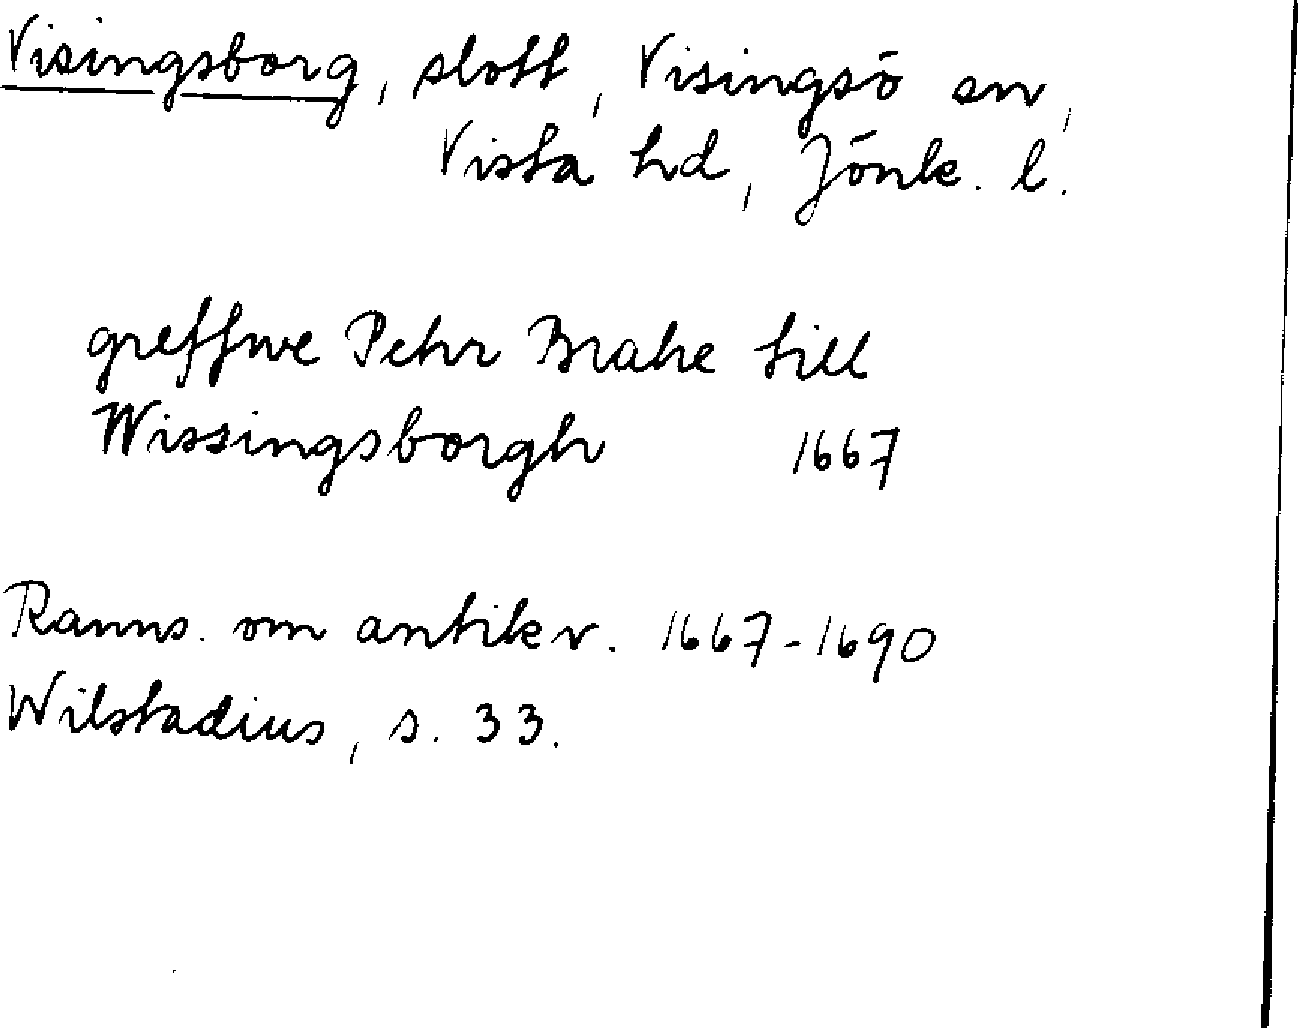 Visingsborg, slott, Visingsö sn,
Vista hd, Jönk. l.
greffwe Pehr Brahe till
Wissingsborgh 1667
Ranns. om antikv. 1667-1690
Wilstadius, s. 33.